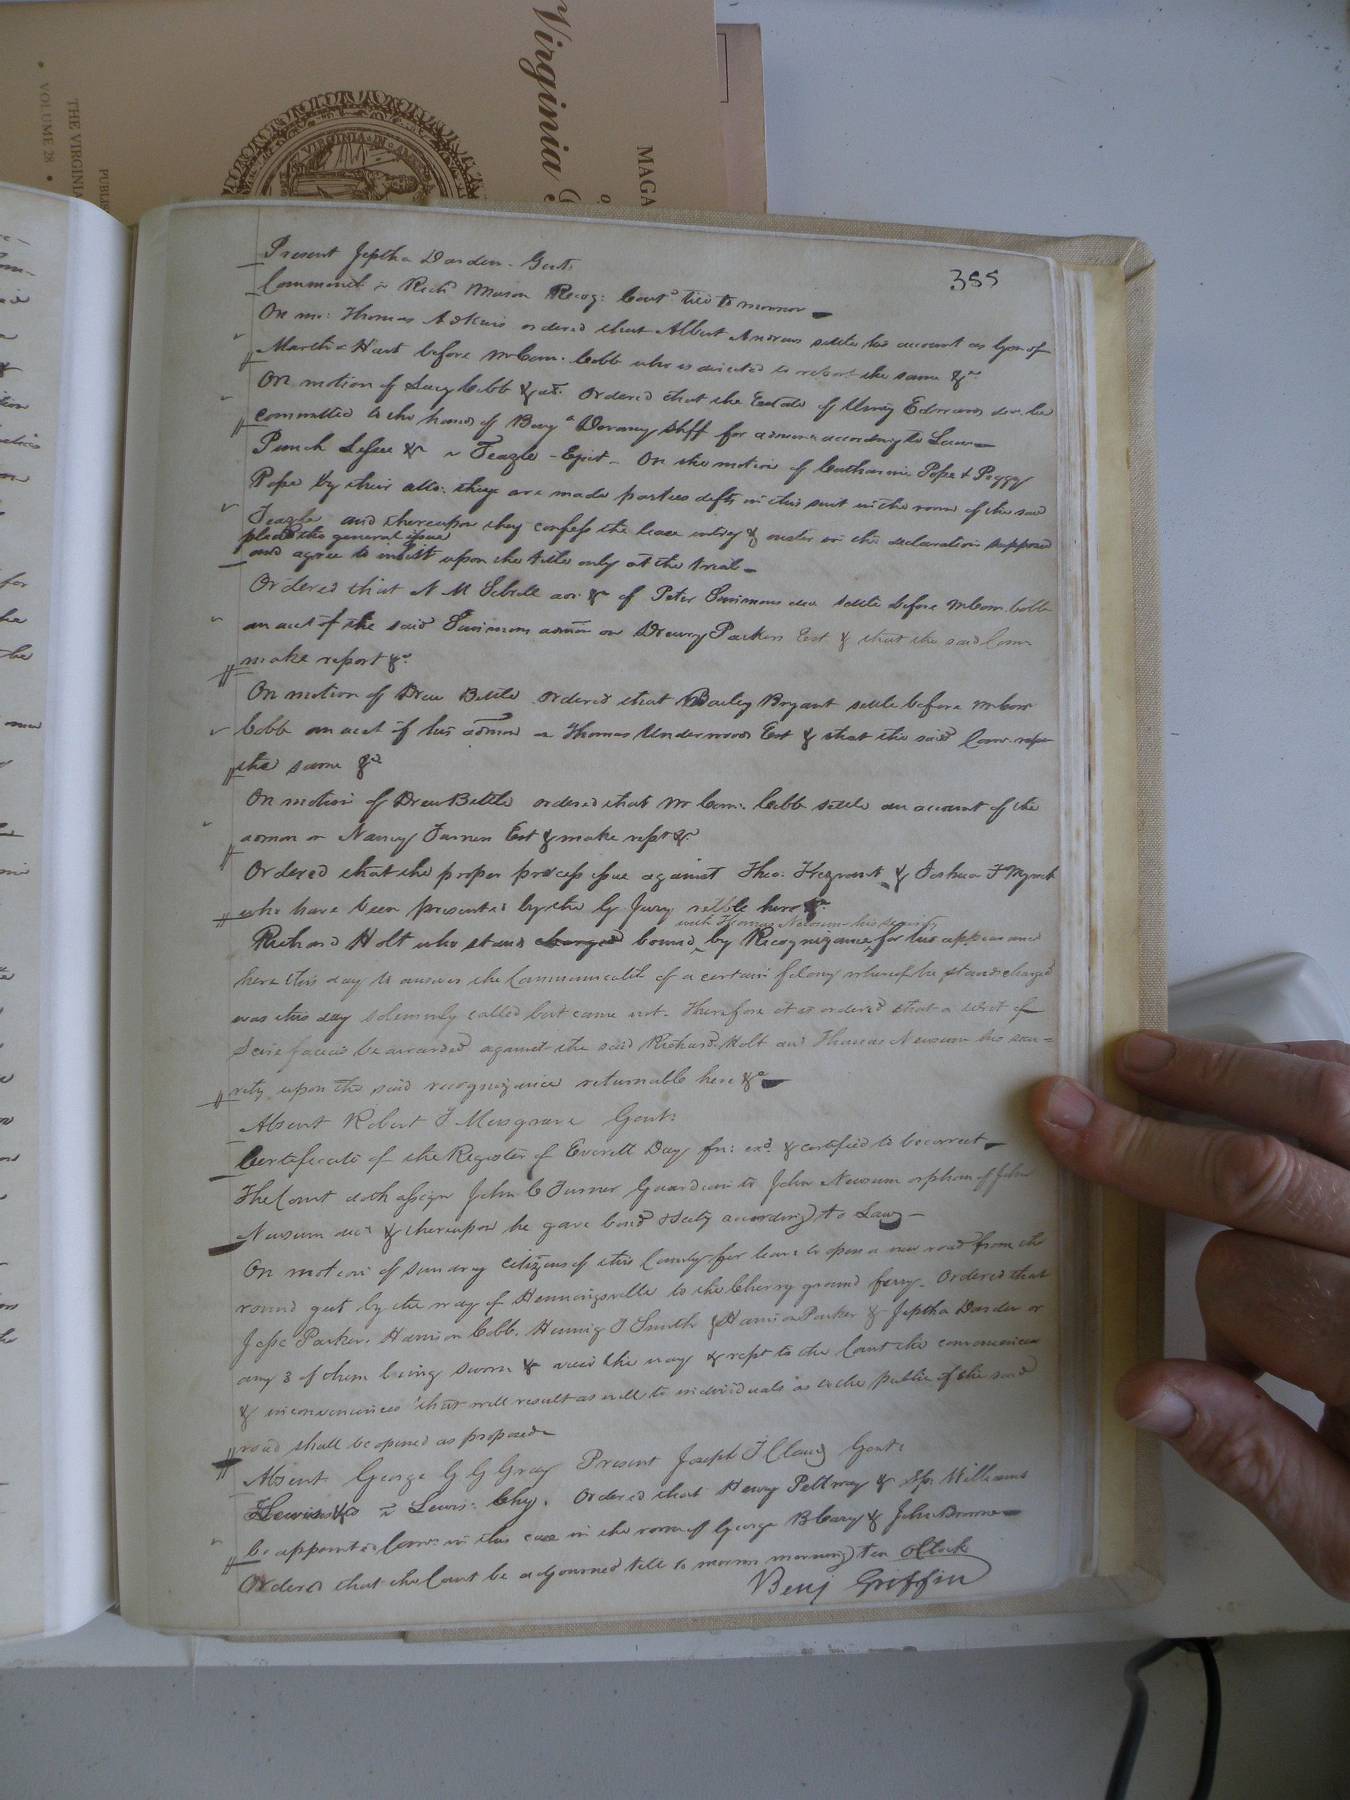 Virginia
MAGA
THE VIRGINIA
VOLUME 28
PUBLI
VIRGINIA IN
355
Present Jeptha Darden Gent.
Commonwlt. v Richd Mason Recog: Contd till to morrow
On mo: Thomas Adkins ordered that Albert Andrews settle his account as Gdn of
Martha Hart before Mr Com. Cobb who is directed to report the same &c
On motion of Lucy Cobb & ordered that the Estate of Edwards decd be
committed to the hands of Benja Devany Shff for admon according to Law
Punch Lessee &c v Teazle - Eject - On the motion of Catharine Pope & Peggy
Pope by their atto: they are made parties defts in this suit in the room of the said
Teazle and thereupon they confess the lease entry & ouster in the declaration supposed
plead the general issue
and agree to insist upon the title only at the trial
Ordered that N M Sebrell adr &c of Peter Simmons decd settle before Mr Com. Cobb
an acct of the said Simmons admon on Drewry Parkers Est & that the said Com
make report &c
On motion of Drew Bittle ordered that Bailey Bryant settle before Mr Com
Cobb an acct of his admon on Thomas Underwoods Est & that the said Com. rept
the same &c
On motion of Drew Bittle ordered that Mr Com. Cobb settle an account of the
admon on Nancy Turners Est & make rept &c
Ordered that the proper process issue against Theo. & Joshua T
who have been presented by the G Jury retble here &c
with Thomas Newsum his security
Richard Holt who stands charged bound by Recognizance for his appearance
here this day to answer the Commonwealth of a certain felony whereof he stands charged
was this day solemnly called but came not. Therefore it is ordered that a writ of
Scire facias be awarded against the said Richard Holt and Thomas Newsum his secu=
rity upon the said recognizance returnable here &c
Absent Robert T Musgrave Gent:
Certificate of the Register of Everett Day fn: exd & certified to be correct
The Court doth assign John C Turner Guardian to John Newsum orphan of John
Newsum decd & thereupon he gave bond & secty according to Law
On motion of sundry citizens of this County for leave to open a new road from the
round gut by the way of Henningsville to the Cherry ground ferry. Ordered that
Jesse Parker, Harrison Cobb, Hennig T Smith Harrison Parker & Jeptha Darden or
any 3 of them being sworn & view the way & rept to the Court the conveniences
& inconveniences that will result as well to individuals as to the public if the said
road shall be opened as proposed
Absent George G G Gray Present Joseph T Claud Gent:
Lewis &c v Lewis: Chy. Ordered that Henry Peltway & Williams
be appointed Comrs in this case in the room of George B Cary & John
Ordered that the Court be adjourned till to morrow morning ten oClock
Benj Griffin